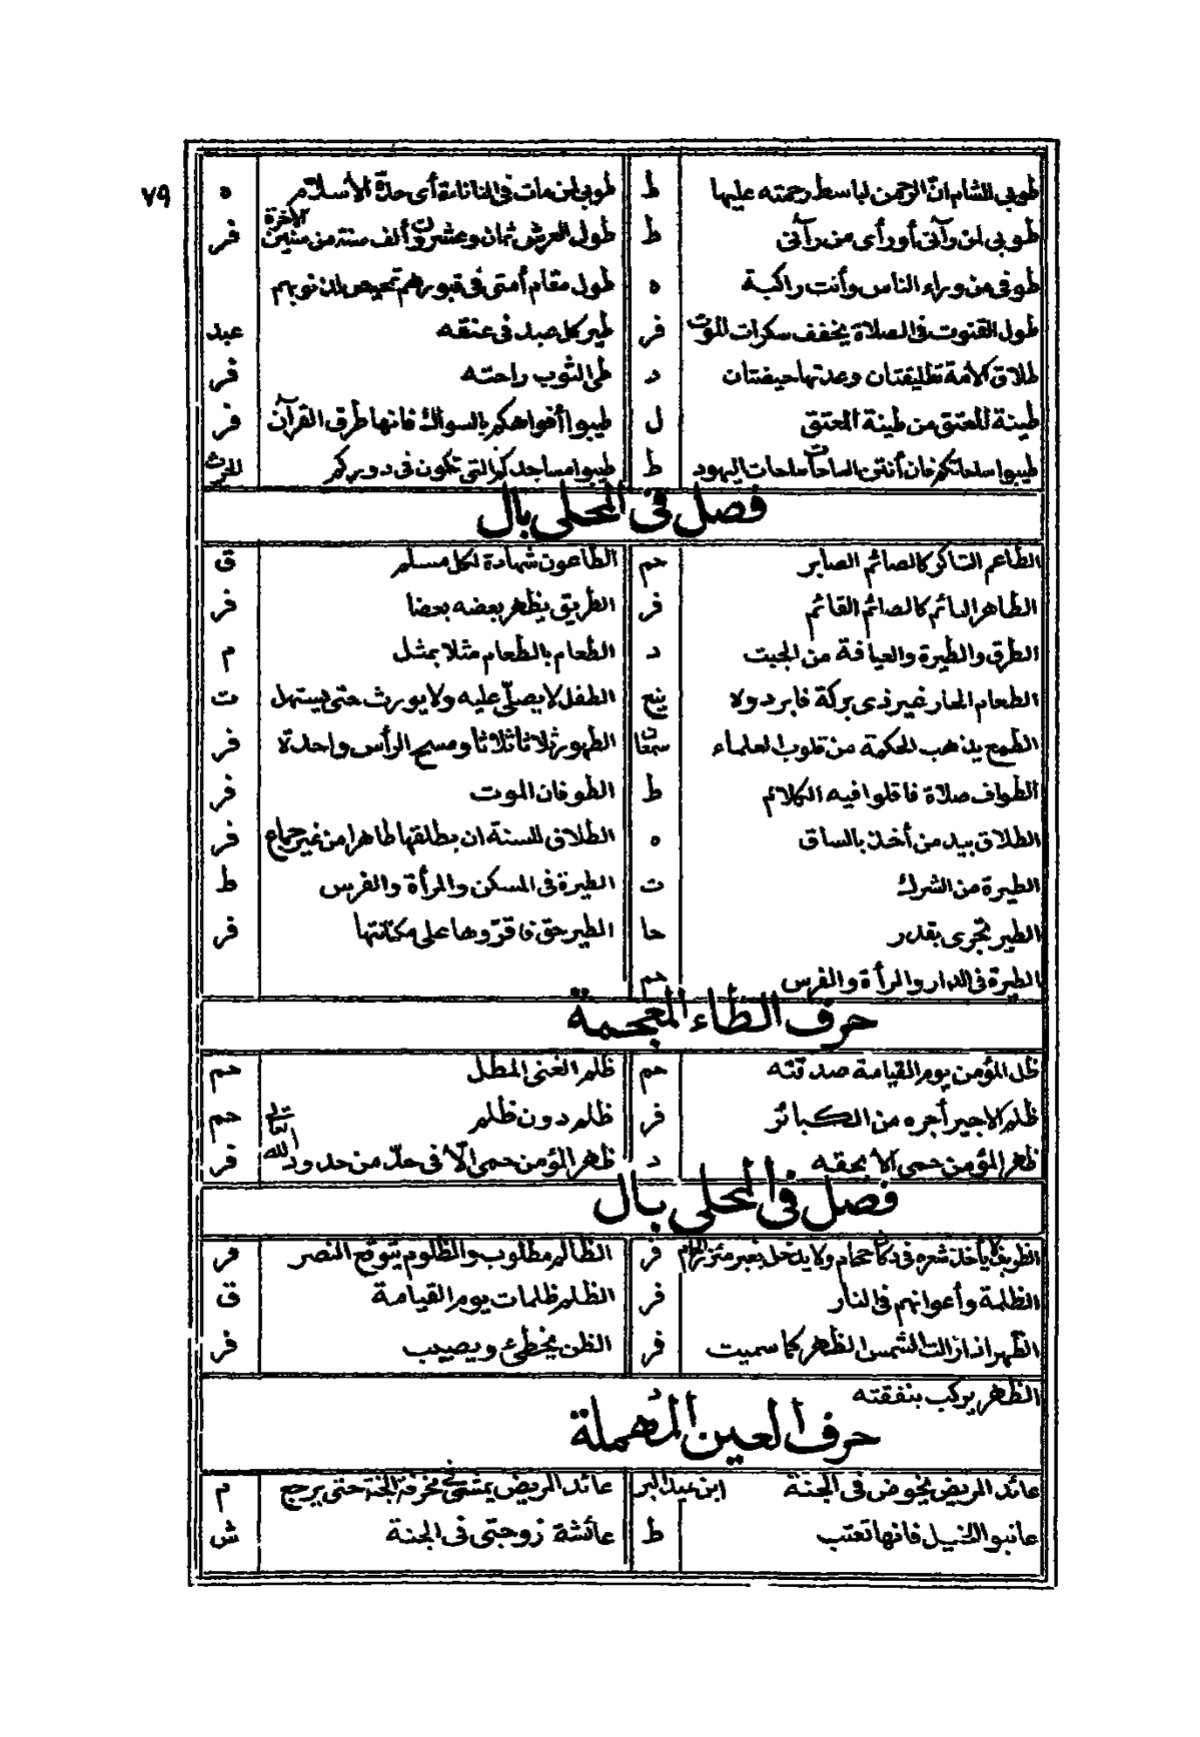 ٧٩
طوبى للشام ان الرحمن لباسط رحمته عليها ط طوبى لمن مات فى النانأة أى حدة الأسلام ه
طوبى لمن رآنى أو رأى من رآنى ط طول العرش ثمان وعشرون ألف سنة من سنين الآخرة فر
طوفى من وراء الناس وأنت راكبة ه طول مقام أمتى فى قبورهم تمحيص لذنوبهم
طول القنوت فى الصلاة يخفف سكرات الموت فر طير كل عبد فى عنقه عبد
طلاق الأمة تطليقتان وعدتها حيضتان د طى الثوب راحته فر
طينة المعتق من طينة المعتق ل طيبوا أفواهكم بالسواك فانها طرق القرآن فر
طيبوا ساحاتكم فان أنتن الساحات ساحات اليهود ط طيبوا مساجدكم التى تكون فى دوركم الحرث
فصل فى المحلى بال
الطاعم الشاكر كالصائم الصابر حم الطاعون شهادة لكل مسلم ق
الطاهر النائم كالصائم القائم فر الطريق يظهر بعضه بعضا فر
الطرق والطيرة والعيافة من الجبت د الطعام بالطعام مثلا بمثل م
الطعام الحار غير ذى بركة فابردوه الطفل لا يصلى عليه ولا يورث حتى يستهل ت
الطمع يذهب الحكمة من قلوب العلماء الطهور ثلاثا ثلاثا ومسح الرأس واحدة فر
الطواف صلاة فاقلوا فيه الكلام ط الطوفان الموت فر
الطلاق بيد من أخذ بالساق ه الطلاق للسنة ان يطلقها طاهرا من غير جماع فر
الطيرة من الشرك ت الطيرة فى المسكن والمرأة والفرس ط
الطير تجرى بقدر حا الطير حق فاقروها على مكناتها فر
الطيرة فى الدار والمرأة والفرس حم
حرف الظاء المعجمة
ظل المؤمن يوم القيامة صدقته حم ظلم الغنى المطل حم
ظلم الاجير أجره من الكبائر فر ظلم دون ظلم حم
ظهر المؤمن حمى الا بحقه د ظهر المؤمن حمى الا فى حد من حدود الله تعالى فر
فصل فى المحلى بال
فر الظالم مطلوب والمظلوم يتوقع النصر فر
الظلمة وأعوانهم فى النار فر الظلم ظلمات يوم القيامة ق
الظهر اذا زالت الشمس الظهر كما سميت فر الظن يخطئ ويصيب فر
الظهر يركب بنفقته د
حرف العين المهملة
عائد المريض يخوض فى الجنة ابن عبد البر عائد المريض يمشى فى مخرفة الجنة حتى يرجع م
عاتبوا الخيل فانها تعتب ط عائشة زوجتى فى الجنة ش